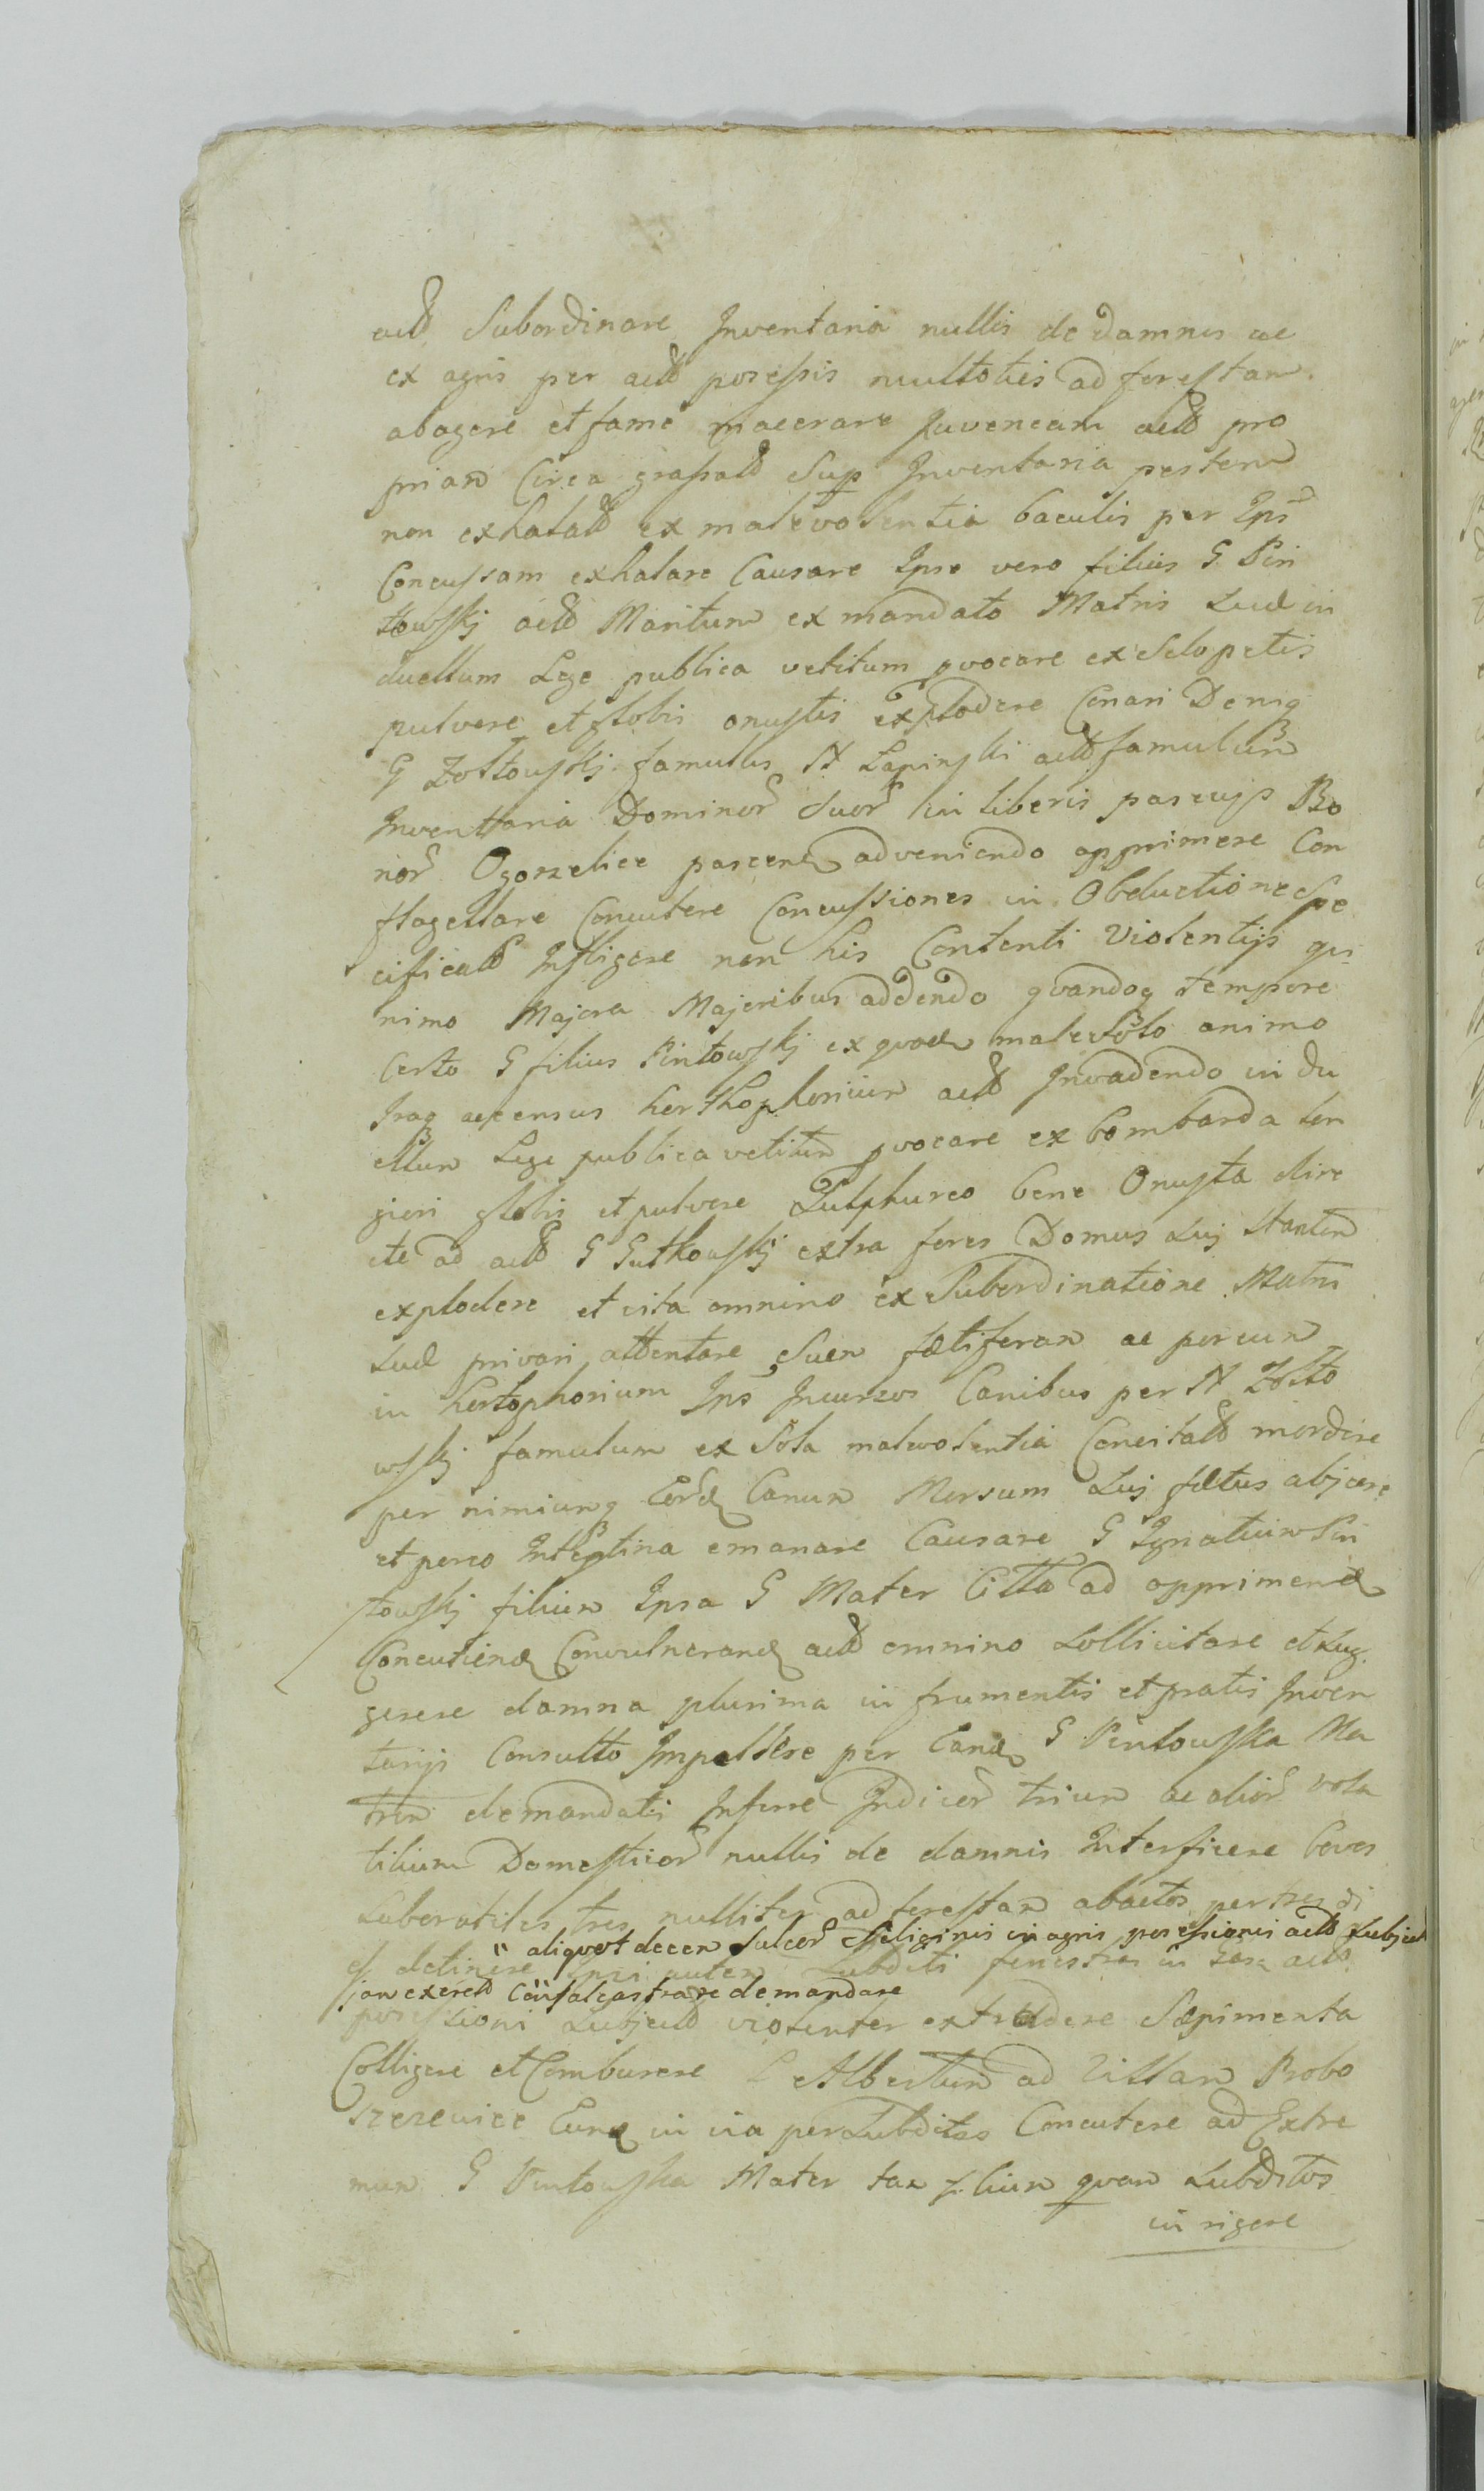 actd Subordinare Inventaria nullis de damnis ac
ex agris per actd possessis multoties ad forestam
abagere et fame macerare Juvencam actd pro
priam Circa grassatd Sup Inventaria pestem
non exhalatd ex malevolentia baculis per Ips
Concussam exhalare Causare Ipse vero filius G Pin
towskj actd Maritum ex mandato Matris Suæ in
duellum Lege publica vetitum pvocare ex Sclopetis
pulvere et globis onustis explodere Conari Deniq
G Zołtowskj famulus N Lapinski actd famulum
Inventaria Dominor Suor in liberis pascuis Bo
nor Ogorzelice pascen adveniendo opprimere Con
flagellare Concutere Concussiones in Obductione Spe
cificatd Infligere non his Contenti Violentijs qui
nimo Majora Majoribus addendo quandoq tempore
Certo G filius Pintowskj ex quod malevolo animo
Iraq accensus horthophorium actd Invadendo in du
ellum Lege publica vetitum pvocare ex bombarda lon
giori globis et pulvere Sulphureo bene Onusta dire
cte ad actd G Gutkowskj extra fores Domus Suj Stantem
explodere et vita omnino ex Subordinatione Matris
Suæ privari attentare Suem fœtiferam ac porcum
in hortophorium Ips Incursos Canibus per N Zołto
wskj famulum ex Sola malevolentia Concitatd mordere
per nimiumq Eord Canum Morsum Suj fœtus abjicere
et porco Intestina emanare Causare G Ignatium Pin
towskj filium Ipsa G Mater Citta ad opprimend
Concutiend Convulnerand actd omnino Sollicitare et Sug
gerere damna plurima in frumentis et pratis Inven
tarijs Consulto Impellere per Eand G Pintowska Ma
trem demandatis Inferre Indicor trium ac alior vola
tilium Domesticor nullis de damnis Interficere boves
Laboratiles tres nulliter ad forestam abactos per tres di
es detinere Ipsi autem Subditi fenestras in actd
aliquot decem Sulcor Siliginis in agris possessionis actd Subject
jam exerctd demandare
possessioni Subjectd violenter extrudere Sæpimenta
Colligere et Comburere L Albertum ad Villam Probo
szczewice Eund in via per Subditos Concutere ad Extre
mum G Pintowska Mater tam filium quam Subditos
in rigore